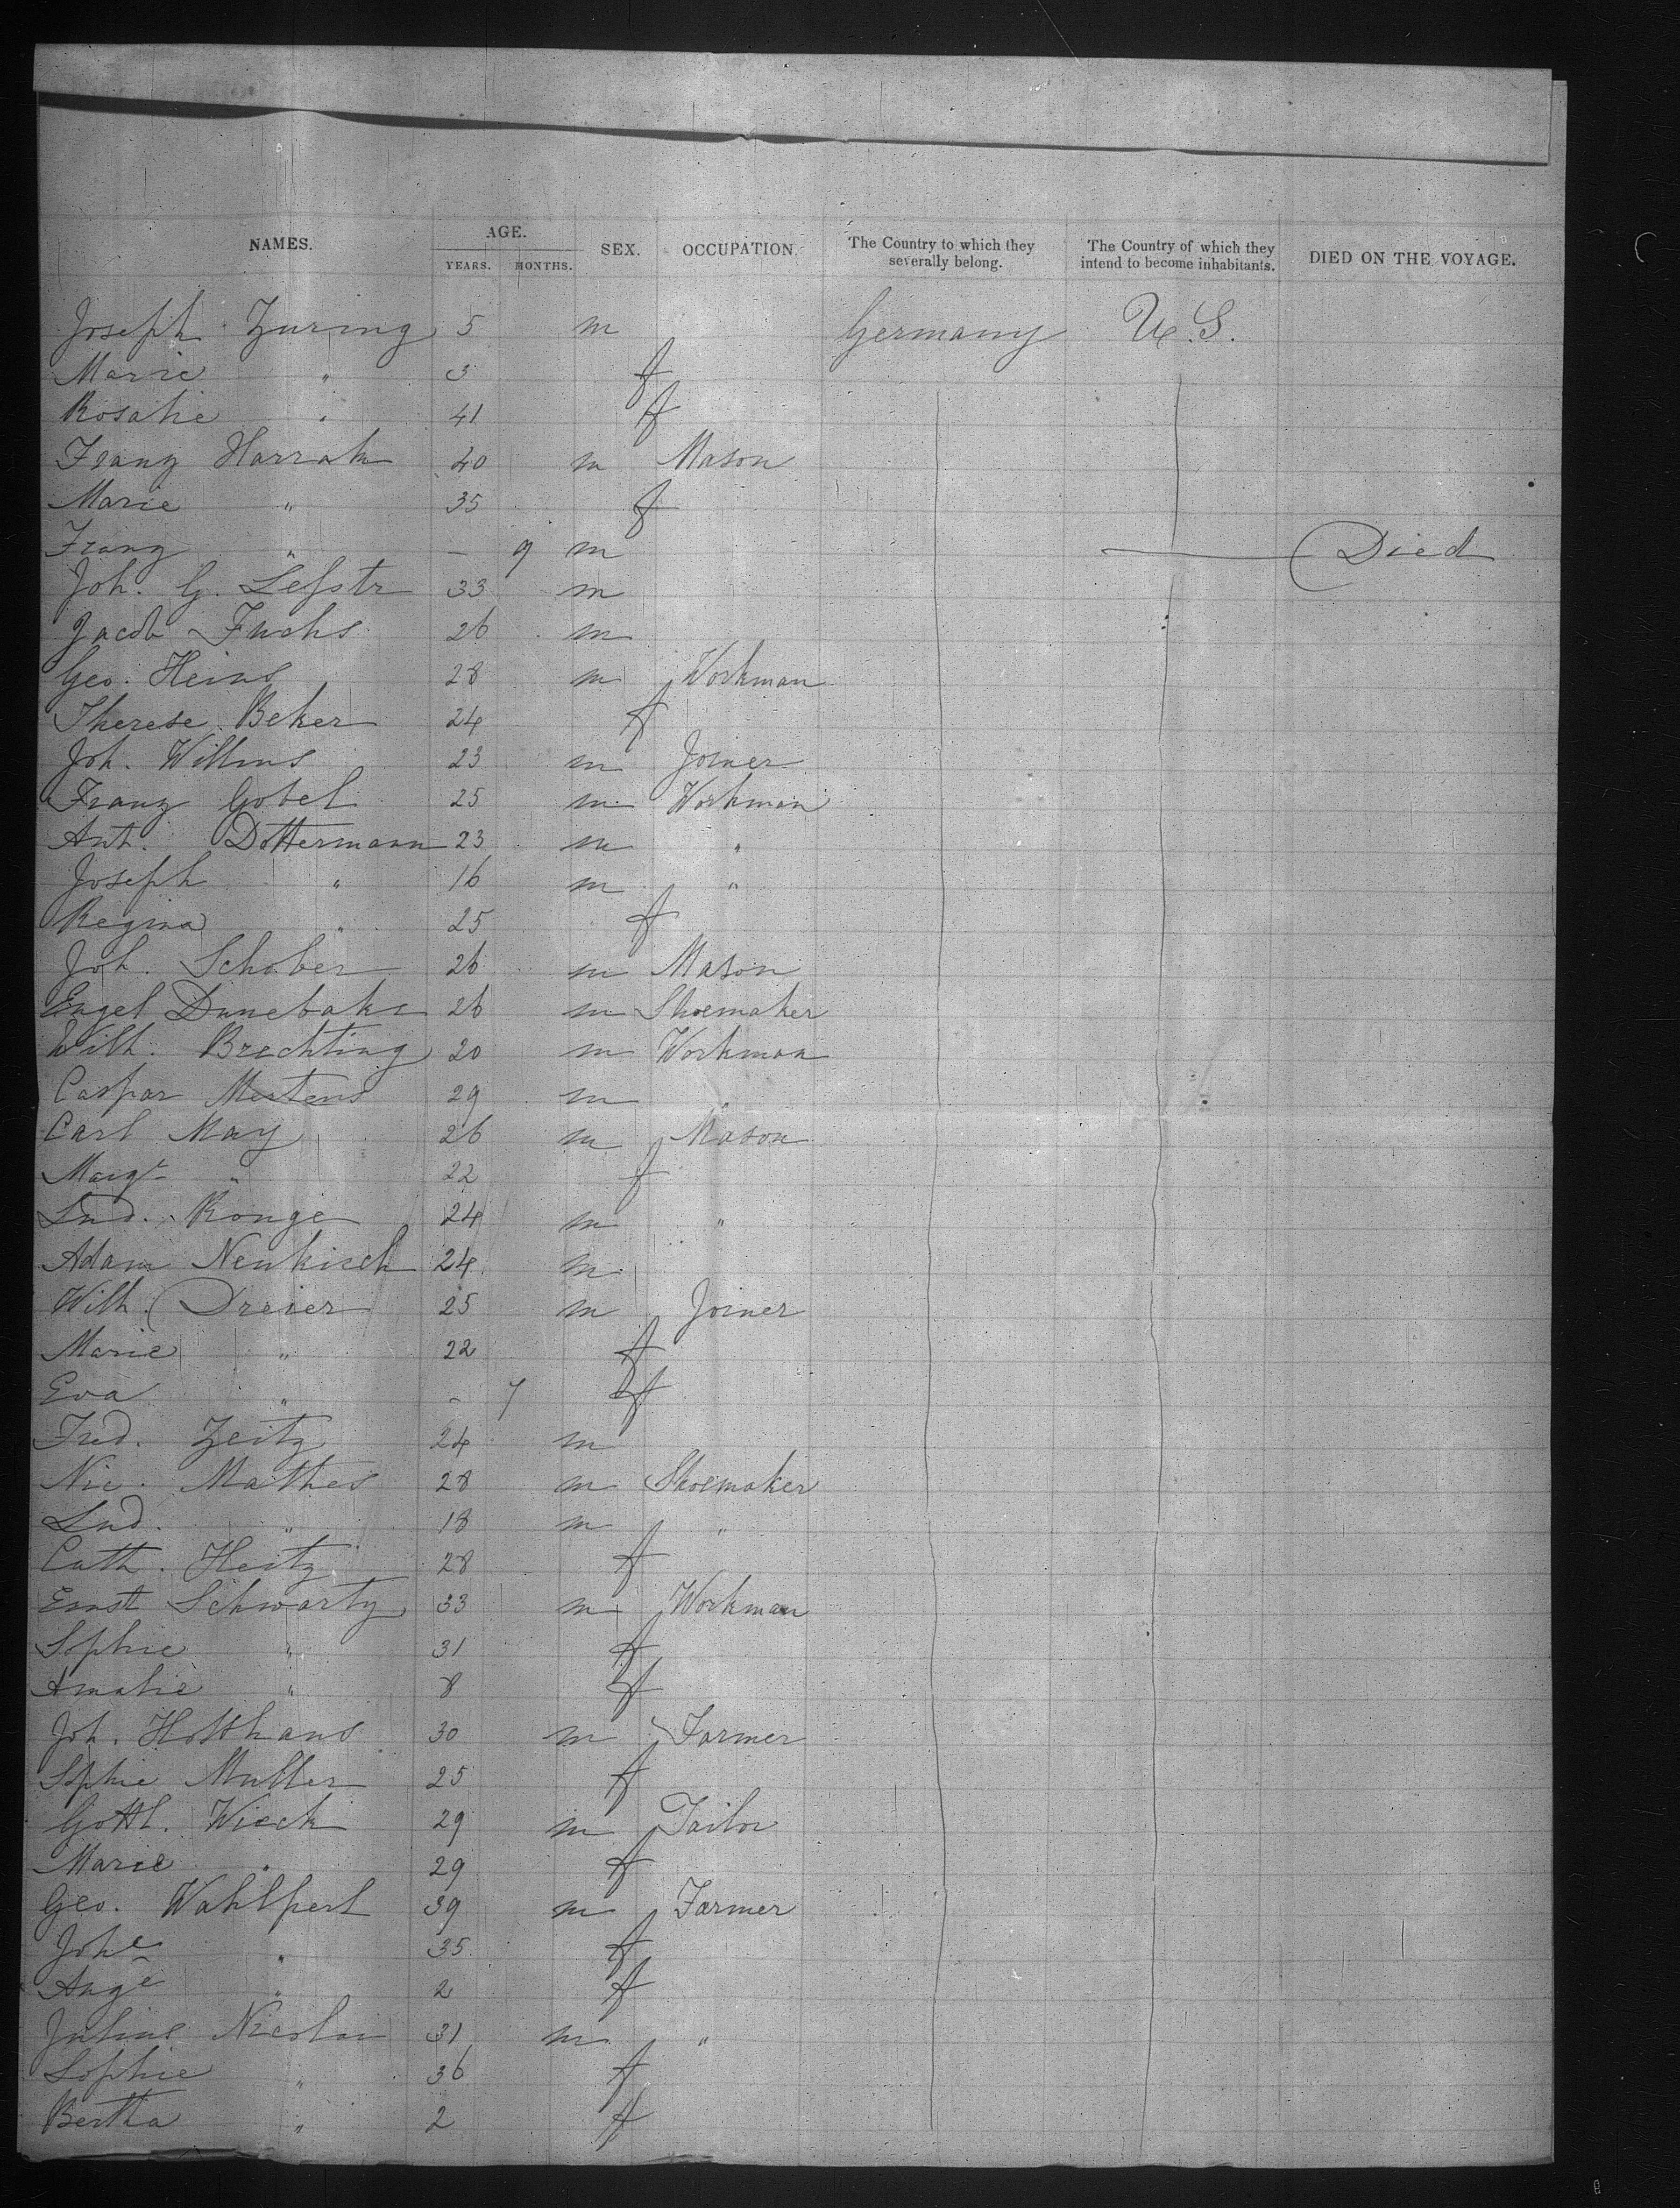 NAMES. AGE. YEARS. MONTHS. SEX. OCCUPATION. The Country to which they severally belong. The Country of which they intend to become inhabitants. DIED ON THE VOYAGE.
Joseph Zuring 5 m Germany U.S.
Marie " 3 f
Rosalie " 41 f
Franz Harrak 40 m Mason
Marie " 35 f
Franz " – 9 m Died
Joh. G. 33 m
Jacob Fuchs 26 m
Geo. Heins 28 m Workman
Therese Beker 24 f
Joh. Willms 23 m Joiner
Franz Gobel 25 m Workman
Ant. Dottermann 23 m "
Joseph " 16 m "
Regina " 25 f
Joh. Schober 26 m Mason
Engel Dunebake 26 m Shoemaker
Wilh. Brechting 20 m Workman
Caspar Mertens 29 m
Carl May 26 m Mason
Margr " 22 f
Lud. Ronge 24 m "
Adam Neukisch 24 m
Wilh. Dreier 25 m Joiner
Marie " 22 f
Eva " – 7 f
Fred. Zeitz 24 m
Nic. Mathes 28 m Shoemaker
Lud. " 18 m "
Cath. Heitz 28 f
Ernst Schwartz 33 m Workman
Sophie " 31 f
Amalie " 8 f
Joh. Holthaus 30 m Farmer
Sophie Muller 25 f
Gottl. Wieck 29 m Tailor
Marie " 29 f
Geo. Wahlpert 39 m Farmer
Johe " 35 f
Auge " 2 f
Julius Nicolai 31 m "
Sophie " 36 f
Bertha " 2 f